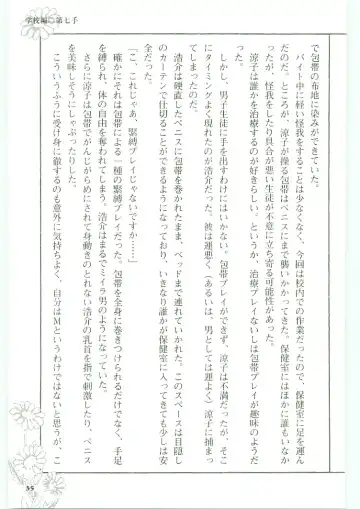 学校編◯第七手
で包帯の布地に染みができていた。
　バイト中に軽い怪我をすることは少なくなく、今回は校内での作業だったので、保健室に足を運ん
だのだ。ところが、涼子が操る包帯はペニスにまで襲いかかってきた。保健室にはほかに誰もいなか
ったが、怪我をしたり具合が悪い生徒が不意に立ち寄る可能性があった。
　涼子は誰かを治療するのが好きらしい。というか、治療プレイないしは包帯プレイが趣味のようだ。
　しかし、男子生徒に手を出すわけにはいかない。包帯プレイができず、涼子は不満だったが、そこ
にタイミングよく現れたのが浩介だった。彼は運悪く（あるいは、男としては運よく）涼子に捕まっ
てしまったのだ。
　浩介は硬直したペニスに包帯を巻かれたまま、ベッドまで連れていかれた。このスペースは目隠し
のカーテンで仕切ることができるようになっており、いきなり誰かが保健室に入ってきても少しは安
全だった。
「こ、これじゃあ、緊縛プレイじゃないですか……」
　確かにそれは包帯による一種の緊縛プレイだった。包帯を全身に巻きつけられるだけでなく、手足
を縛られ、体の自由を奪われてしまう。浩介はまるでミイラ男のようになっていた。
　さらに涼子は包帯でがんじがらめにされて身動きのとれない浩介の乳首を指で刺激したり、ペニス
を美味しそうにしゃぶったりした。
　こういうふうに受け身に徹するのも意外に気持ちよく、自分はＭというわけではないと思うが、こ
35